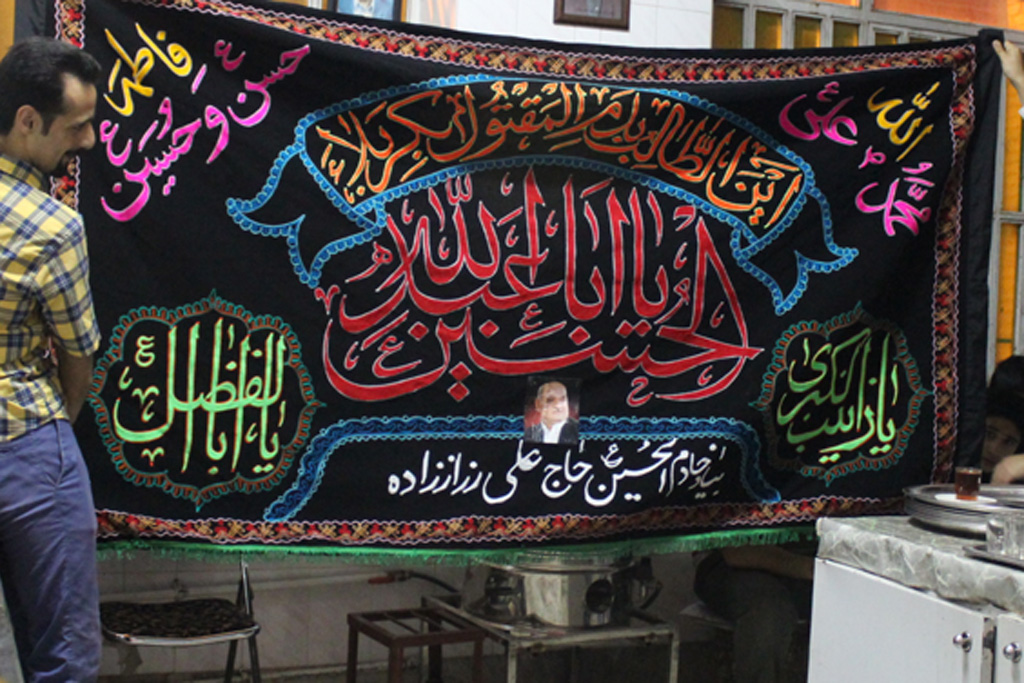 الله
محمد
علی
فاطمه
حسن و حسین
این الطالب بدم المقتول بکربلاء
یا ابا عبدالله
الحسین
یا زینب الکبری
یا اباالفضل
بیاد خادم الحسین حاج علی رزاززاده